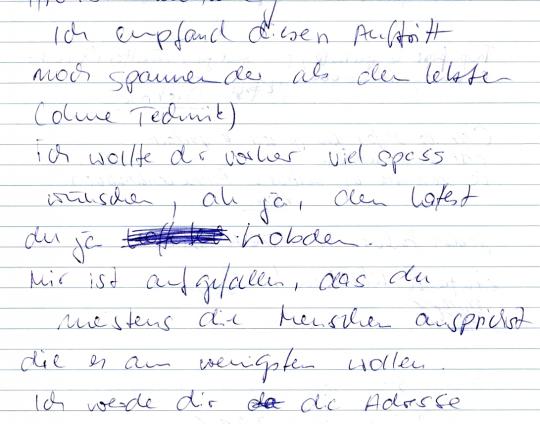 Ich empfand diesen Auftritt
noch spannender als den letzten
(ohne Technik)
ich wollte dir vorher viel spass
wünschen, ah ja, den hattest
du ja trotzdem.
Mir ist aufgefallen, das du
meistens die Menschen ansprichst
die es am wenigsten wollen.
Ich werde dir die Adresse